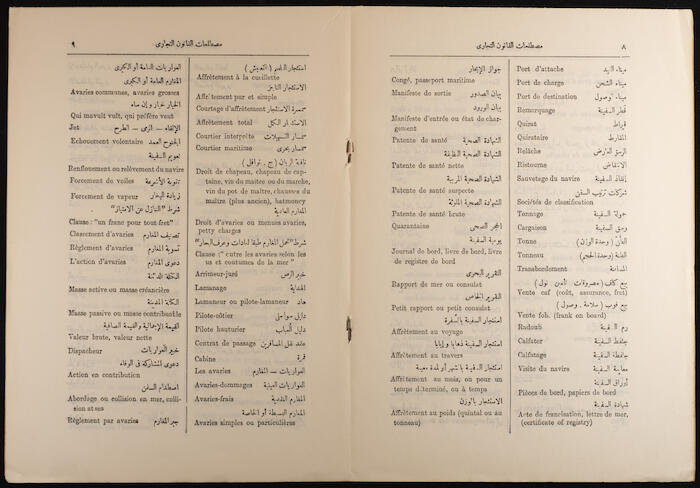 ٨
مصطلحات القانون التجارى
ميناء القيد
Port d'attache
ميناء الشحن
Port de charge
ميناء الوصول
Port de destination
قطر السفينة
Remorquage
قيراط
Quirat
المقارط
Quirataire
Relâche
Ristourne
إنقاذ السفينة
Sauvetage du navire
شركات ترتيب السفن
Sociétés de classification
حمولة السفينة
Tonnage
وسق السفينة
Cargaison
الطن (وحدة الوزن)
Tonne
الطن (وحدة الحجم)
Tonneau
المسافنة
Transbordement
Vente caf (coût, assurance, fret)
Vente fob. (frank en board)
رم السفينة
Radoub
جلفط السفينة
Calfater
جلفطة السفينة
Calfatage
معاينة السفينة
Visite du navire
أوراق السفينة
Pièces de bord, papiers de bord
شهادة السفينة
Acte de francisation, lettre de mer,
(certificate of registry)
جواز الإبحار
Congé, passeport maritime
بيان الصدور
Manifeste de sortie
بيان الورود
Manifeste d'entrée ou état de char-
gement
الشهادة الصحية
Patente de santé
الشهادة الصحية النظيفة
Patente de santé nette
الشهادة الصحية المريبة
Patente de santé suspecte
الشهادة الصحية الملوثة
Patente de santé brute
الحجر الصحى
Quarantaine
يومية السفينة
Journal de bord, livre de bord, livre
de registre de bord
التقرير البحرى
Rapport de mer ou consulat
التقرير الخاص
Petit rapport ou petit consulat
استئجار السفينة بالسفرة
Affrètement au voyage
استئجار السفينة ذهابا وإيابا
Affrètement au travers
استئجار السفينة بالشهر أو لمدة معينة
Affrètement au mois, en pour un
temps déterminé, ou à temps
الاستئجار بالوزن
Affrètement au poids (quintal ou au
tonneau)
٩
مصطلحات القانون التجارى
Affrètement à la cueillette
Affrètement pur et simple
سمسرة الاستئجار
Courtage d'affrètement
الاستئجار الكلى
Affrètement total
Courtier interprète
سمسار بحرى
Courtier maritime
Droit de chapeau, chapeau de cap-
taine, vin du maître ou du marche,
vin du pot de maître, chausses du
maître (plus ancien), hatmoney
المغارم العادية
Droit d'avaries ou menues avaries,
petty charges
Clause :" entre les avaries selon les
us et coutumes de la mer "
خبير الرص
Arrimeur-juré
الهداية
Lamanage
هاد
Lamaneur ou pilote-lamaneur
دليل سواحل
Pilote-côtier
دليل العباب
Pilote hauturier
عقد نقل المسافرين
Contrat de passage
قمرة
Cabine
العواريات — المغارم
Les avaries
العواريات العينية
Avaries-dommages
المغارم النقدية
Avaries-frais
المغارم البسيطة أو الخاصة
Avaries simples ou particulières
العواريات العامة أو الكبرى
المغارم العامة أو الكبرى
Avaries communes, avaries grosses
Qui mavult vult, qui préfère veut
الإلقاء — الرمى — الطرح
Jet
الجنوح العمد
Echouement volontaire
تعويم السفينة
Renflouement ou relèvement du navire
Forcement de voiles
زيادة البخار
Forcement de vapeur
شرط "التنازل عن الامتياز"
Clause : "un franc pour tout fret"
تصنيف المغارم
Classement d'avaries
تسوية المغارم
Règlement d'avaries
دعوى المغارم
L'action d'avaries
الكتلة الدائنة
Masse active ou masse créancière
الكتلة المدينة
Masse passive ou masse contribuable
القيمة الإجمالية والقيمة الصافية
Valeur brute, valeur nette
خبير العواريات
Dispacheur
دعوى المشاركة فى الوفاء
Action en contribution
اصطدام السفن
Abordage ou collision en mer, colli-
sion at sea
جبر المغارم
Règlement par avaries